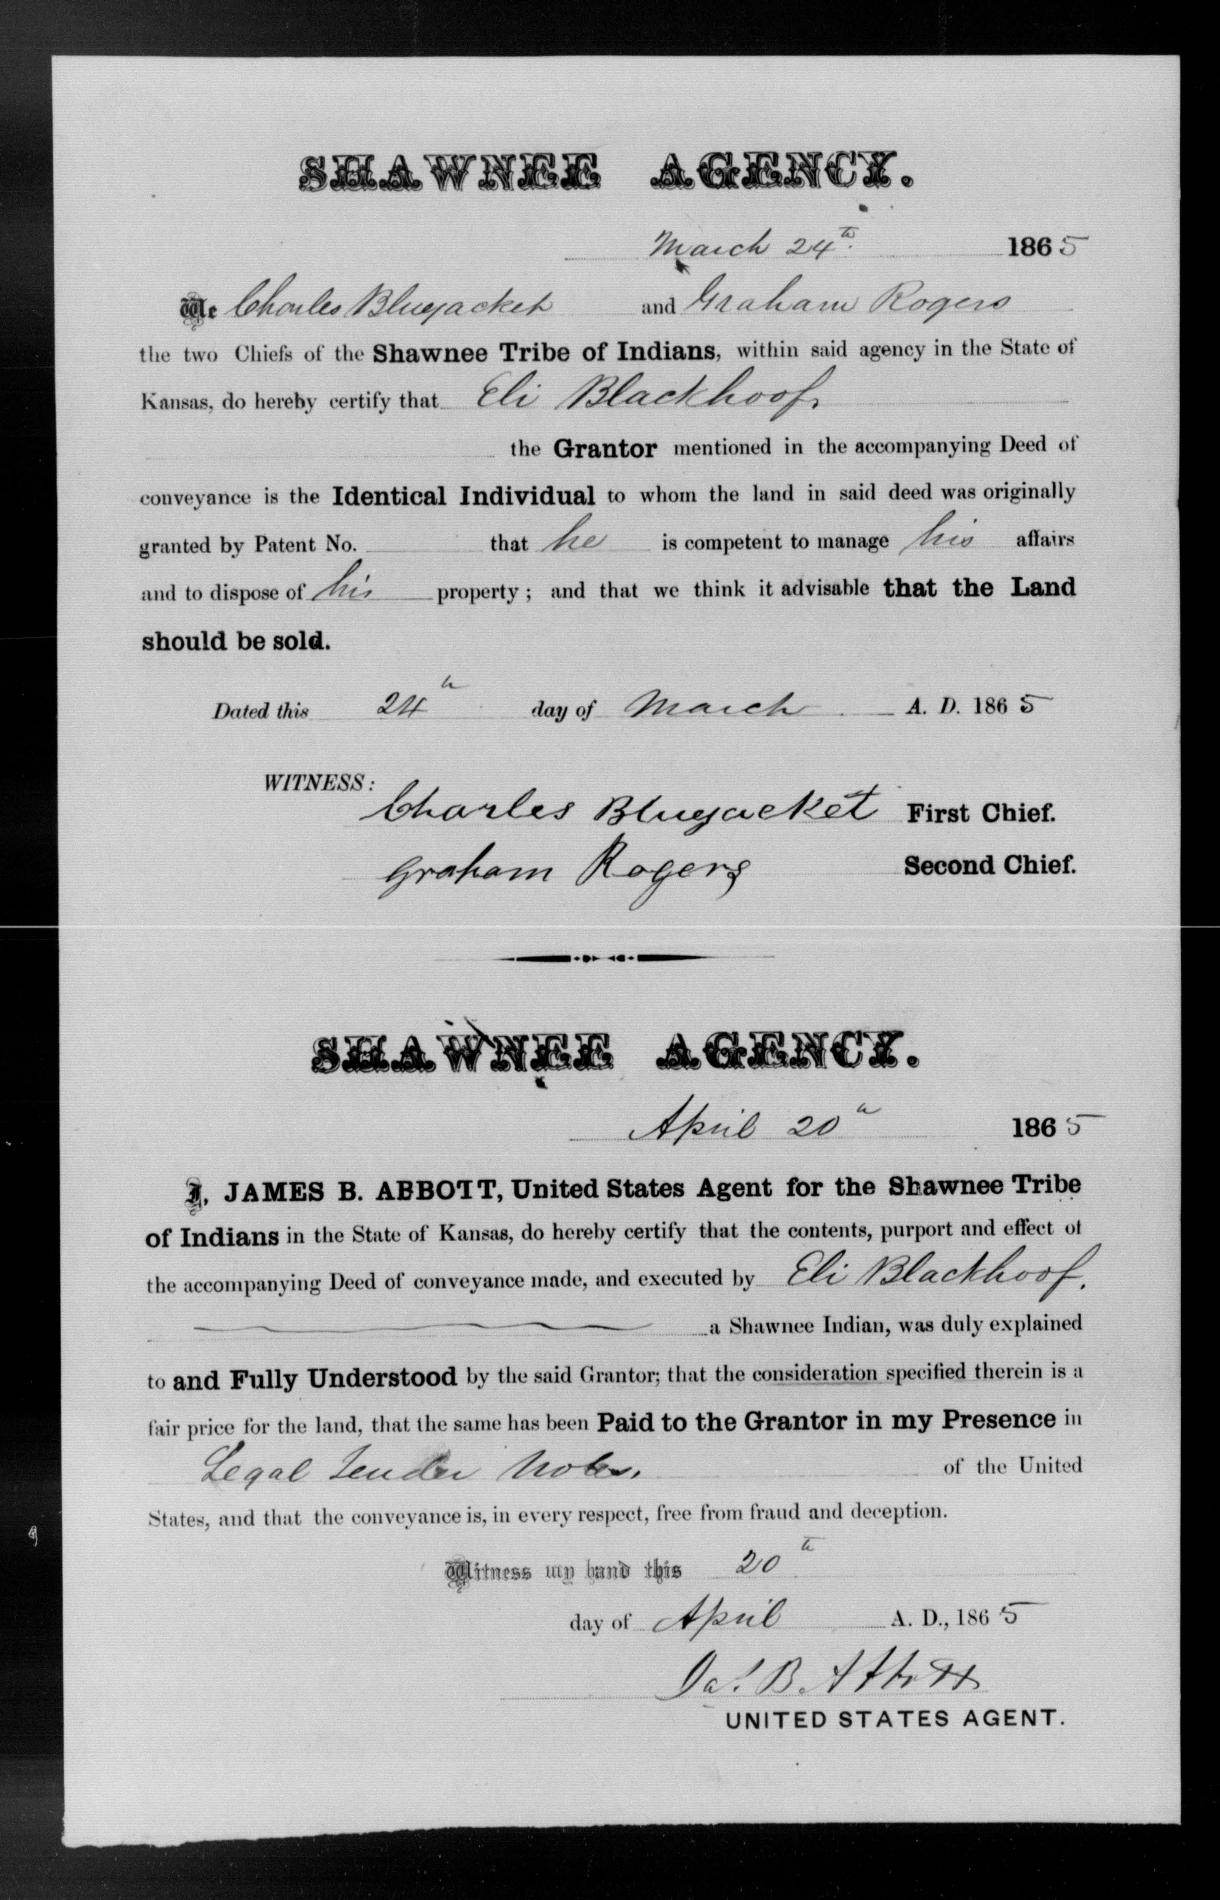 SHAWNEE AGENCY.
March 24th. 1865
We Charles Bluejacket and Graham Rogers
the two Chiefs of the Shawnee Tribe of Indians, within said agency in the State of
Kansas, do hereby certify that Eli Blackhoof,
the Grantor mentioned in the accompanying Deed of
conveyance is the Identical Individual to whom the land in said deed was originally
granted by Patent No. that he is competent to manage his affairs
and to dispose of his property; and that we think it advisable that the Land
should be sold.
Dated this 24th day of March A. D. 1865
WITNESS:
Charles Bluejacket First Chief.
Graham Rogers Second Chief.
SHAWNEE AGENCY.
April 20th 1865
I, JAMES B. ABBOTT, United States Agent for the Shawnee Tribe
of Indians in the State of Kansas, do hereby certify that the contents, purport and effect of
the accompanying Deed of conveyance made, and executed by Eli Blackhoof,
a Shawnee Indian, was duly explained
to and Fully Understood by the said Grantor; that the consideration specified therein is a
fair price for the land, that the same has been Paid to the Grantor in my Presence in
Legal Tender Notes, of the United
States, and that the conveyance is, in every respect, free from fraud and deception.
Witness my hand this 20th
day of April A. D., 1865
Jas. B. Abbott
UNITED STATES AGENT.